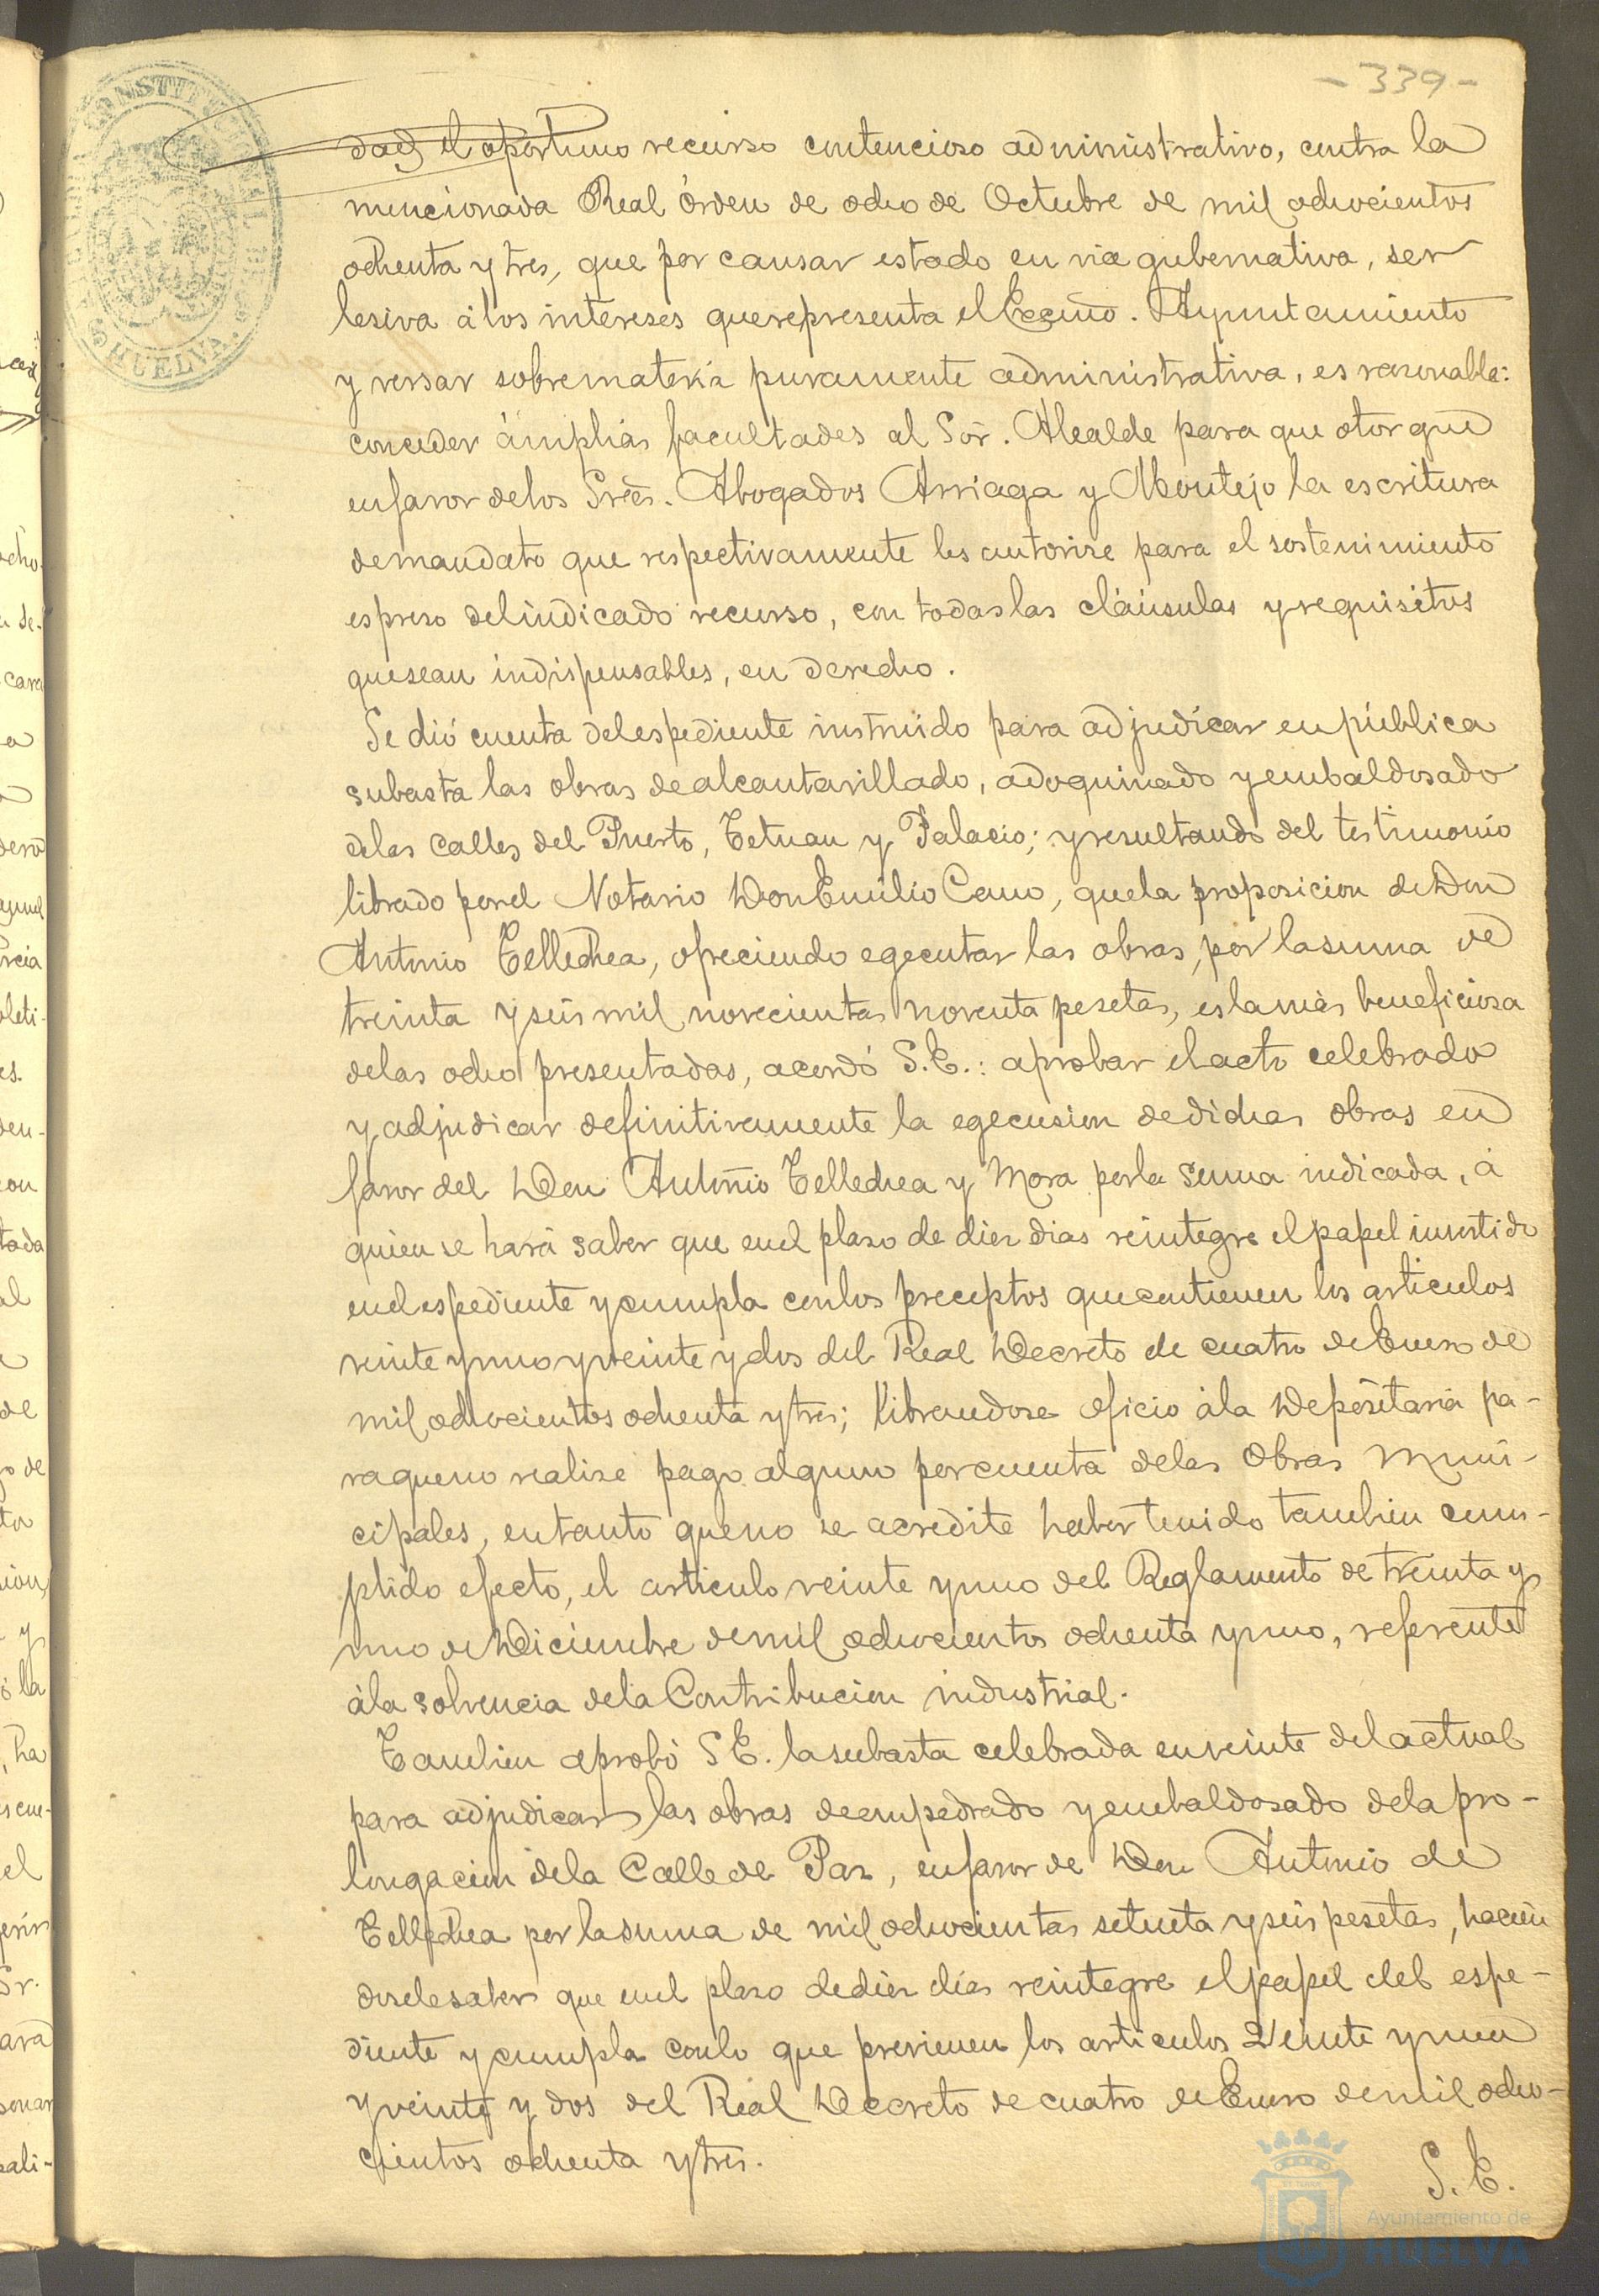 -339-
dad, el oportuno recurso contencioso administrativo, contra la
mencionada Real órden de ocho de Octubre de mil ochocientos
ochenta y tres, que por causar estado en via gubernativa, ser
lesiva á los intereses que representa el Excmo. Ayuntamiento
y versar sobre materia puramente administrativa, es razonable:
conceder ámplias facultades al Sor. Alcalde para que otorgue
en favor de los Sres. Abogados Arriaga y Montejo la escritura
de mandato que respectivamente les autorise para el sostenimiento
espreso del indicado recurso, con todas las cláusulas y requisitos
que sean indispensables, en derecho.
Se dió cuenta del espediente instruido para adjudicar en pública
subasta las obras de alcantarillado, adoquinado y embaldosado
de las calles del Puerto, Tetuan y Palacio; y resultando del testimonio
librado por el Notario Don Emilio Cano, que la proposicion de Don
Antonio Tellechea, ofreciendo egecutar las obras, por la suma de
treinta y seis mil novecientas noventa pesetas, es la más beneficiosa
de las ocho presentadas, acordó S.E.: aprobar el acto celebrado
y adjudicar definitivamente la egecusion de dichas obras en
favor del Don Antonio Tellechea y Mora por la suma indicada, á
quien se hará saber que en el plazo de diez dias reintegre el papel invertido
en el espediente y cumpla con los preceptos que contienen los articulos
veinte y uno y veinte y dos del Real Decreto de cuatro de Enero de
mil ochocientos ochenta y tres; librandose oficio á la Depositaria pa-
ra que no realise pago alguno por cuenta de las Obras Muni-
cipales, en tanto que no se acredite haber tenido tambien cum-
plido efecto, el articulo veinte y uno del Reglamento de treinta y
uno de Diciembre de mil ochocientos ochenta y uno, referente
á la solvencia de la Contribucion industrial.
Tambien aprobó S E. la subasta celebrada en veinte del actual
para adjudicar las obras de empedrado y embaldosado de la pro-
longacion de la Calle de Paz, en favor de Don Antonio de
Tellechea por la suma de mil ochocientas setenta y seis pesetas, hacien
dosele saber que en el plazo de diez dias reintegre el papel del espe-
diente y cumpla con lo que previenen los articulos Veinte y uno
y veinte y dos del Real Decreto de cuatro de Enero de mil ocho-
cientos ochenta y tres.
S. E.
CONSTITUCIONAL
HUELVA
Ayuntamiento de
HUELVA